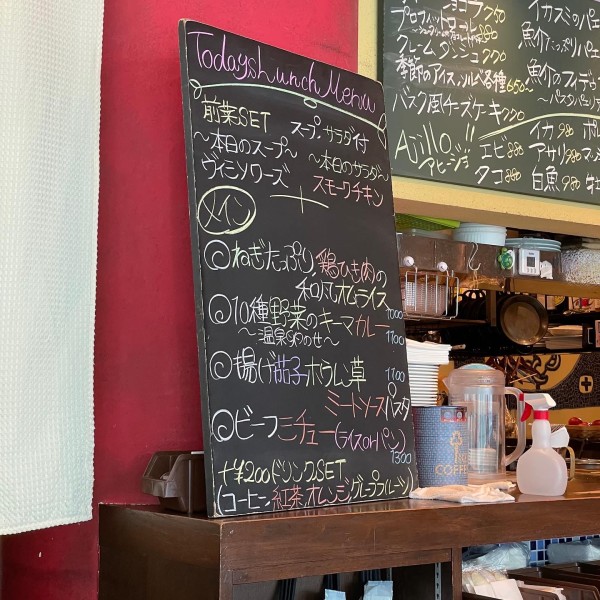 Todays Lunch Menu
前菜SET スープ・サラダ付
～本日のスープ～ ～本日のサラダ～
ヴィシソワーズ スモークチキン
+
メイン
◎ねぎたっぷり鶏ひき肉の
和風オムライス
1000
◎10種野菜のキーマカレー
～温泉卵のせ～ 1100
◎揚げ茄子ホウレン草 1100
ミートソースパスタ
◎ビーフシチュー(ライスorパン)
1300
+¥200ドリンクSET
(コーヒー 紅茶 オレンジ グレープフルーツ)
プロフィットロール
クレームダンジュ
季節のアイス、ソルベ各種 650
バスク風チーズケーキ 770
Ajillo!!
アヒージョ
エビ 880
タコ 880
イカスミのパエ
魚介たっぷりパエ
魚介のフィデウ
～パスタパエリア
イカ 980
アサリ 980
白魚 980
COFFEE